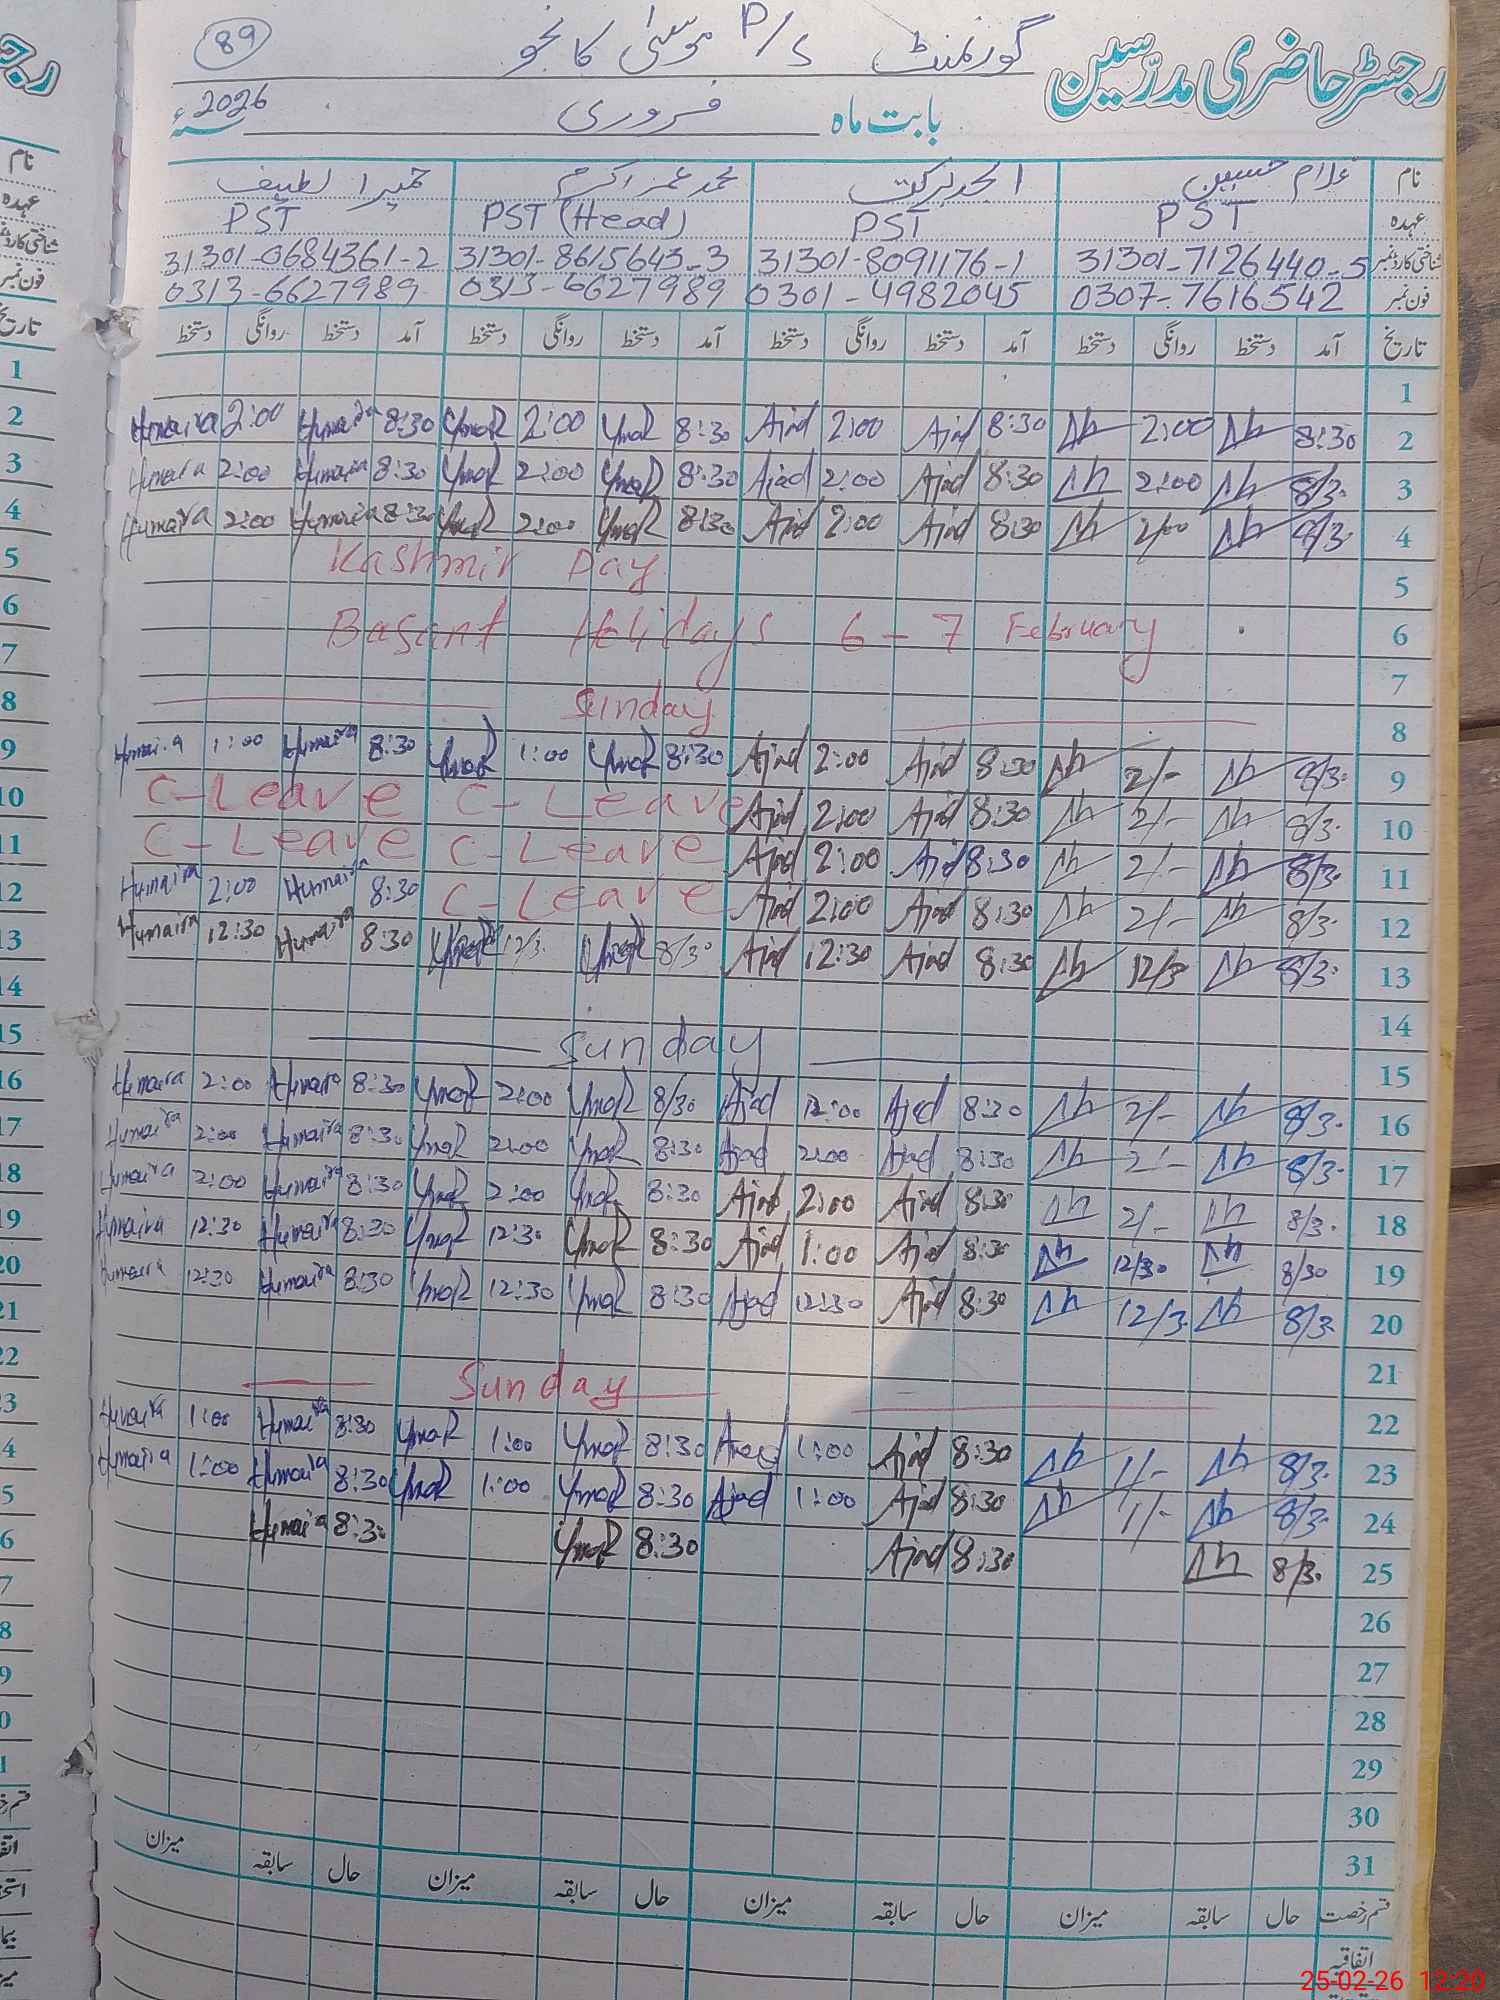 رجسٹر حاضری مدرسین گورنمنٹ P/S موسیٰ کا نجو 89
بابت ماہ فروری 2026ء
نام غلام حسین امجد برکت محمد عمر اکرم حمیرا لطیف
عہدہ PST PST PST (Head) PST
شناختی کارڈ نمبر 31301-7126440-5 31301-8091176-1 31301-8615643-3 31301-0684361-2
فون نمبر 0307-7616542 0301-4982045 0313-6627989 0313-6627989
تاریخ آمد دستخط روانگی دستخط آمد دستخط روانگی دستخط آمد دستخط روانگی دستخط آمد دستخط روانگی دستخط
1
Humaira 2:00 Humaira 8:30 YmaR 2:00 YmaR 8:30 Ajad 2:00 Ajad 8:30 2:00 8:30 2
Humaira 2:00 Humaira 8:30 YmaR 2:00 YmaR 8:30 Ajad 2:00 Ajad 8:30 2:00 8/3. 3
Humaira 2:00 Humaira 8:30 YmaR 2:00 YmaR 8:30 Ajad 2:00 Ajad 8:30 2/00 8/3. 4
Kashmir Day 5
Basant Holidays 6-7 February 6
7
Sunday 8
Humaira 1:00 Humaira 8:30 YmaR 1:00 YmaR 8:30 Ajad 2:00 Ajad 8:30 2/- 8/3. 9
C-Leave C-Leave Ajad 2:00 Ajad 8:30 2/- 8/3. 10
C-Leave C-Leave Ajad 2:00 Ajad 8:30 2/- 8/3. 11
Humaira 2:00 Humaira 8:30 C-Leave Ajad 2:00 Ajad 8:30 2/- 8/3. 12
Humaira 12:30 Humaira 8:30 YmaR 12/3. YmaR 8/30 Ajad 12:30 Ajad 8:30 12/3 8/3. 13
14
Sunday 15
Humaira 2:00 Humaira 8:30 YmaR 2:00 YmaR 8/30 Ajad 12:00 Ajad 8:30 2/- 8/3. 16
Humaira 2:00 Humaira 8:30 YmaR 2:00 YmaR 8:30 Ajad 2:00 Ajad 8:30 2/- 8/3. 17
Humaira 2:00 Humaira 8:30 YmaR 2:00 YmaR 8:30 Ajad 2:00 Ajad 8:30 2/- 8/3. 18
Humaira 12:30 Humaira 8:30 YmaR 12:30 YmaR 8:30 Ajad 1:00 Ajad 8:30 12/30 8/30 19
Humaira 12:30 Humaira 8:30 YmaR 12:30 YmaR 8:30 Ajad 12:30 Ajad 8:30 12/3. 8/3. 20
21
Sunday 22
Humaira 1:00 Humaira 8:30 YmaR 1:00 YmaR 8:30 Ajad 1:00 Ajad 8:30 1/- 8/3. 23
Humaira 1:00 Humaira 8:30 YmaR 1:00 YmaR 8:30 Ajad 1:00 Ajad 8:30 1/- 8/3. 24
Humaira 8:30 YmaR 8:30 Ajad 8:30 8/3. 25
26
27
28
29
30
31
قسم رخصت حال سابقہ میزان حال سابقہ میزان حال سابقہ میزان حال سابقہ میزان
اتفاقیہ
25-02-26 12:20